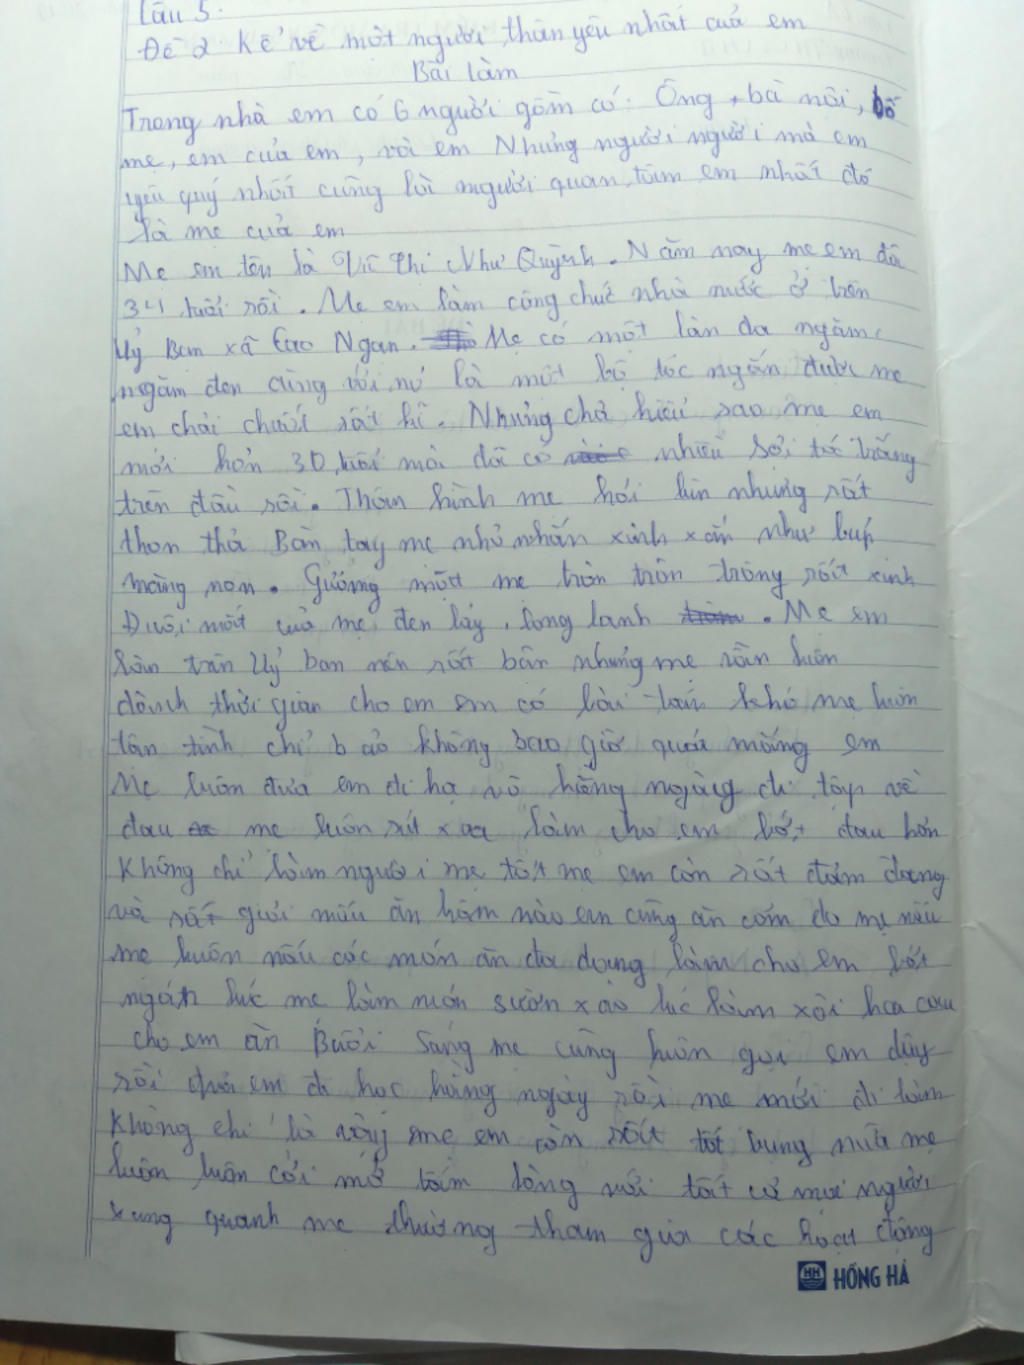 Câu 5:
Đề 2: Kể về một người thân yêu nhất của em
Bài làm
Trong nhà em có 6 người gồm có: Ông, bà nội, bố
mẹ, em của em, và em Nhưng người người mà em
yêu quý nhất cũng là người quan tâm em nhất đó
là mẹ của em
Mẹ em tên là Vũ Thị Như Quỳnh. Năm nay mẹ em đã
34 tuổi rồi. Mẹ em làm công chức nhà nước ở trên
Uỷ Ban xã Cao Ngạn. Mẹ có một làn da ngăm
ngăm đen cùng với nó là một bộ tóc ngắn được mẹ
em chải chuốt rất kĩ. Nhưng chả hiểu sao mẹ em
mới hơn 30 tuổi mà đã có nhiều sợi tóc trắng
trên đầu rồi. Thân hình mẹ hơi lùn nhưng rất
thon thả Bàn tay mẹ nhỏ nhắn xinh xắn như búp
măng non. Gương mặt mẹ tròn tròn trông rất xinh
Đuôi mắt của mẹ đen láy, long lanh. Mẹ em
làm trên Uỷ ban nên rất bận nhưng mẹ vẫn luôn
dành thời gian cho em em có bài toán khó mẹ luôn
tận tình chỉ bảo không bao giờ quát mắng em
Mẹ luôn đưa em đi họ võ hằng ngày đi tập về
đau mẹ luôn xoa làm cho em bớt đau hơn
Không chỉ làm người mẹ tốt mẹ em còn rất đảm đang
và rất giỏi nấu ăn hôm nào em cũng ăn cơm do mẹ nấu
mẹ luôn nấu các món ăn đa dạng làm cho em bớt
ngán lúc mẹ làm món sườn xào lúc làm xôi hoa cau
cho em ăn Buổi sáng mẹ cũng luôn gọi em dậy
rồi đưa em đi học hằng ngày rồi mẹ mới đi làm
Không chỉ là vậy mẹ em còn rất tốt bụng nữa mẹ
luôn luôn cởi mở tấm lòng với tất cả mọi người
xung quanh mẹ thường tham gia các hoạt động
HỒNG HÀ